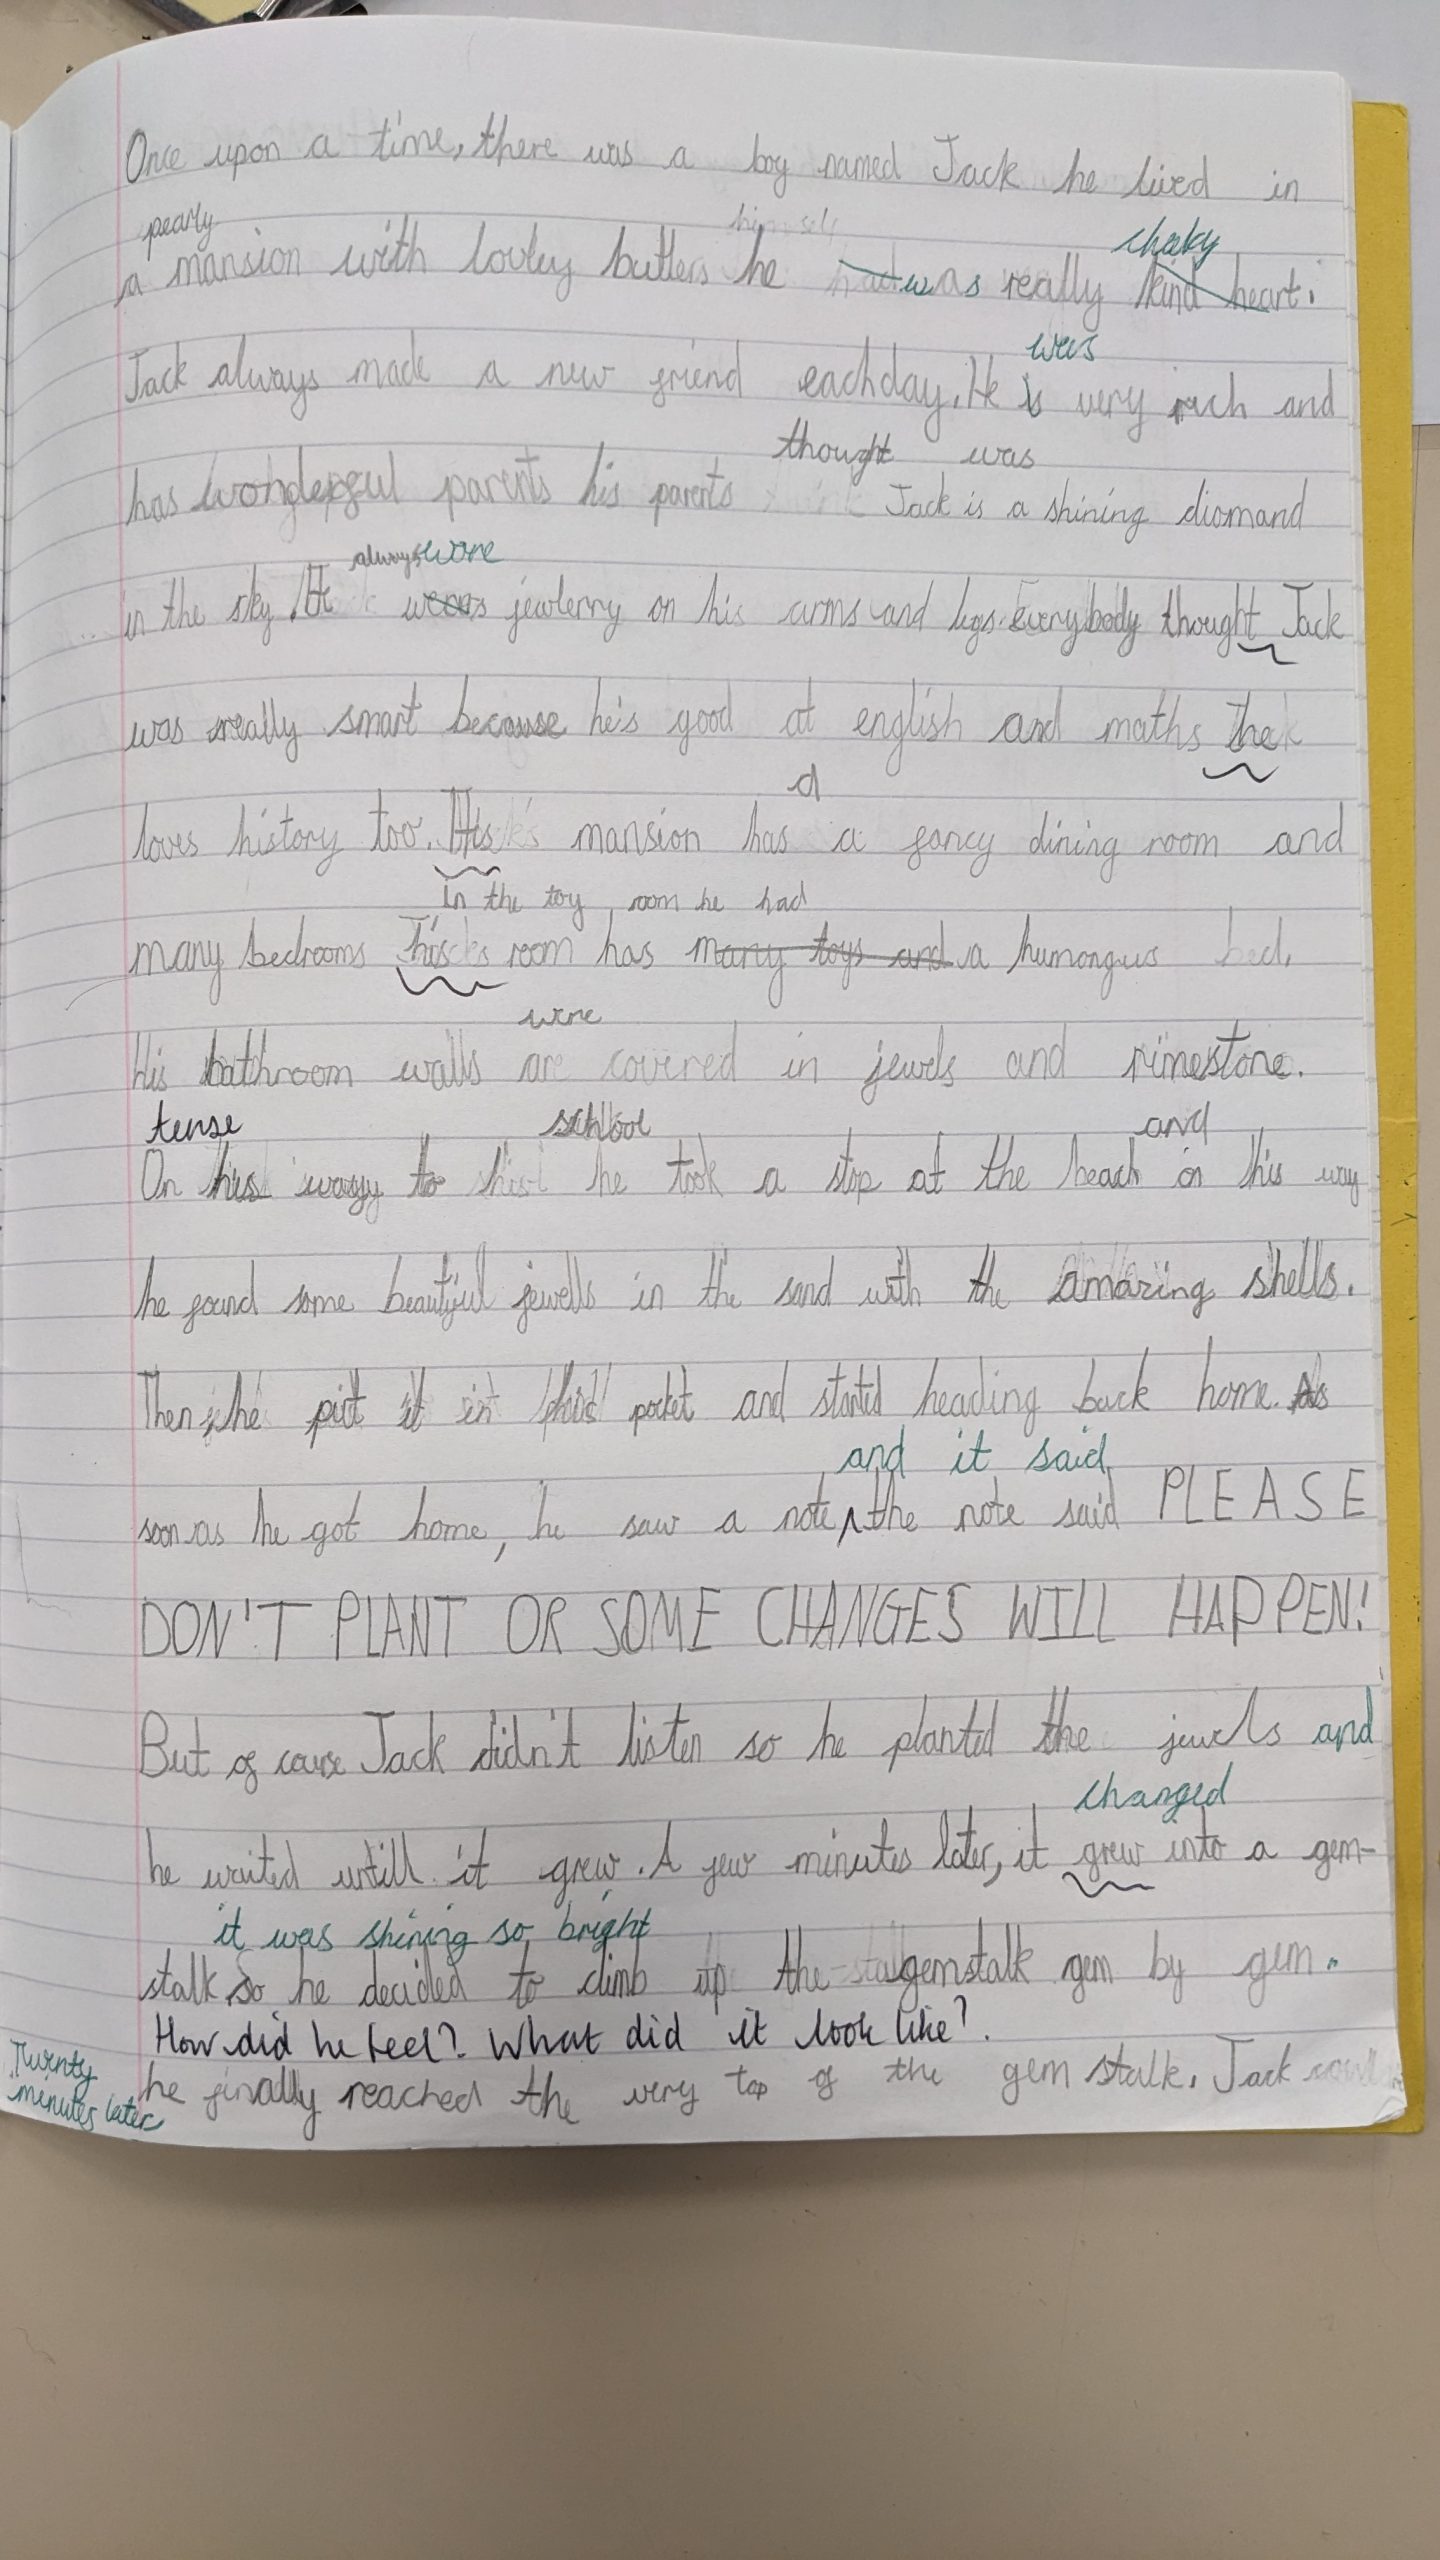 Once upon a time, there was a boy named Jack he lived in
pearly himself cheeky
a mansion with lovley butlers he was really kind heart.
was
Jack always made a new friend eachday. He is very rich and
thought was
has wonderful parents his parents Jack is a shining diomand
always wore
in the sky. He wears jewlerry on his arms and legs. Everybody thought Jack
was really smart because he's good at english and maths he
d
loves history too. His mansion has a fancy dining room and
in the toy room he had
many bedrooms his room has many toys and a humongus bed.
were
His bathroom walls are covered in jewels and rimestone.
tense school and
On his way to he took a stop at the beach on his way
he found some beautiful jewells in the sand with the amazing shells.
Then, he put it in his pocket and started heading back home. As
and it said
soon as he got home, he saw a note, the note said PLEASE
DON'T PLANT OR SOME CHANGES WILL HAPPEN!
But of course Jack didn't listen so he planted the jewels and
changed
he waited untill it grew. A few minutes later, it grew into a gem-
it was shining so bright
stalk so he decided to climb up the gemstalk gem by gem.
How did he feel? What did it look like?
Twenty
minutes later
he finally reached the very top of the gem stalk. Jack